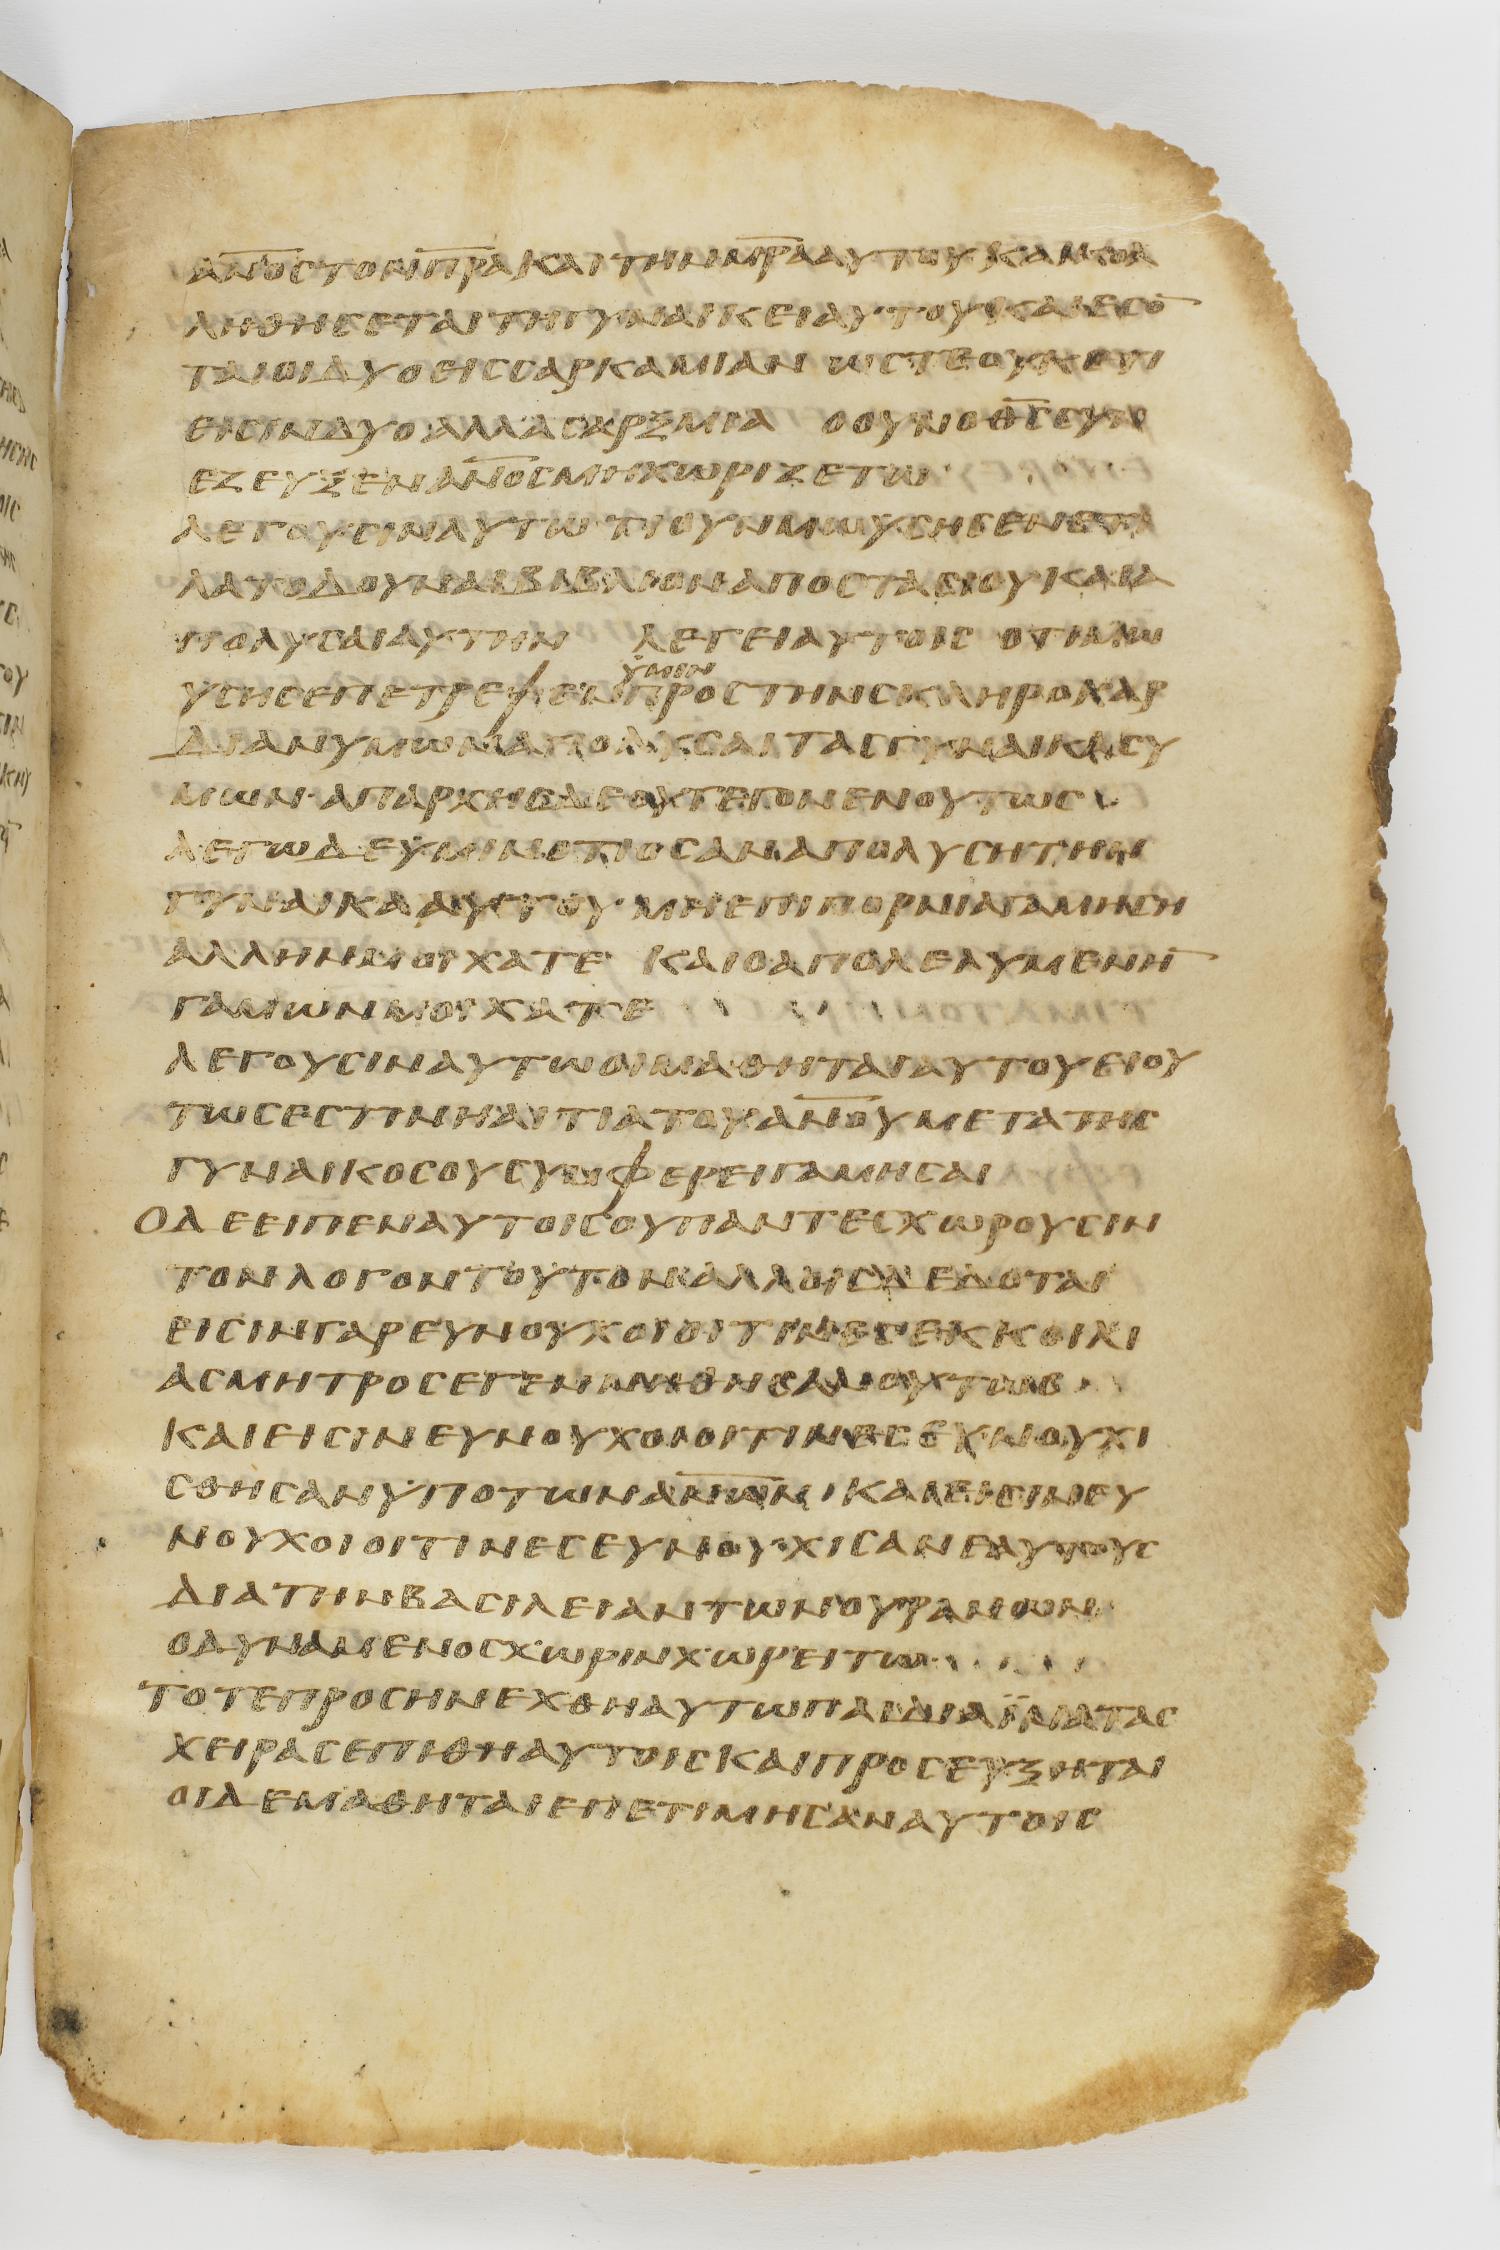 ΑΝΟΣΤΟΝΠΡΑΚΑΙΤΗΝΜΡΑΑΥΤΟΥΚΑΙΚΟΛ
ΛΗΘΗCΕΤΑΙΤΗΓΥΝΑΙΚΕΙΑΥΤΟΥΚΑΙΕCΟ
ΤΑΙΟΙΔΥΟΕΙCCΑΡΚΑΜΙΑΝ ΩCΤΕΟΥΚΕΤΙ
ΕΙCΙΝΔΥΟ ΑΛΛΑCΑΡΞΜΙΑ ΟΟΥΝΟΘCCΥΝ
ΕΖΕΥΞΕΝΑΝΟCΜΗΧΩΡΙΖΕΤΩ
ΛΕΓΟΥCΙΝΑΥΤΩ ΤΙΟΥΝΜΩΥCΗCΕΝΕΤΙ
ΛΑΤΟΔΟΥΝΑΙΒΙΒΛΙΟΝΑΠΟCΤΑCΙΟΥΚΑΙΑ
ΠΟΛΥCΑΙΑΥΤΗΝ ΛΕΓΕΙΑΥΤΟΙC ΟΤΙΜΩ
ΥCΗCΕΠΕΤΡΕΨΕΝΥΜΙΝΠΡΟCΤΗΝCΚΛΗΡΟΚΑΡ
ΔΙΑΝΥΜΩΝΑΠΟΛΥCΑΙΤΑCΓΥΝΑΙΚΑCΥ
ΜΩΝ ΑΠΑΡΧΗCΔΕΟΥΓΕΓΟΝΕΝΟΥΤΩC
ΛΕΓΩΔΕΥΜΙΝΟΤΙΟCΑΝΑΠΟΛΥCΗΤΗΝ
ΓΥΝΑΙΚΑΑΥΤΟΥ ΜΗΕΠΙΠΟΡΝΙΑΓΑΜΗCΗ
ΑΛΛΗΝΜΟΙΧΑΤΕ ΚΑΙΟΑΠΟΛΕΛΥΜΕΝΗ
ΓΑΜΩΝΜΟΙΧΑΤΕ
ΛΕΓΟΥCΙΝΑΥΤΩΟΙΜΑΘΗΤΑΙΑΥΤΟΥΕΙΟΥ
ΤΩCΕCΤΙΝΗΑΙΤΙΑΤΟΥΑΝΟΥΜΕΤΑΤΗC
ΓΥΝΑΙΚΟCΟΥCΥΜΦΕΡΕΙΓΑΜΗCΑΙ
ΟΔΕΕΙΠΕΝΑΥΤΟΙCΟΥΠΑΝΤΕCΧΩΡΟΥCΙΝ
ΤΟΝΛΟΓΟΝΤΟΥΤΟΝΑΛΛΟΙCΔΕΔΟΤΑΙ
ΕΙCΙΝΓΑΡΕΥΝΟΥΧΟΙΟΙΤΙΝΕCΕΚΚΟΙΛΙ
ΑCΜΗΤΡΟCΕΓΕΝΝΗΘΗCΑΝΟΥΤΩC
ΚΑΙΕΙCΙΝΕΥΝΟΥΧΟΙΟΙΤΙΝΕCΕΥΝΟΥΧΙ
CΘΗCΑΝΥΠΟΤΩΝΑΝΩΝ ΚΑΙΕΙCΙΝΕΥ
ΝΟΥΧΟΙΟΙΤΙΝΕCΕΥΝΟΥΧΙCΑΝΕΑΥΤΟΥC
ΔΙΑΤΗΝΒΑCΙΛΕΙΑΝΤΩΝΟΥΡΑΝΩΝ
ΟΔΥΝΑΜΕΝΟCΧΩΡΙΝΧΩΡΕΙΤΩ
ΤΟΤΕΠΡΟCΗΝΕΧΘΗΑΥΤΩΠΑΙΔΙΑΙΝΑΤΑC
ΧΕΙΡΑCΕΠΙΘΗΑΥΤΟΙCΚΑΙΠΡΟCΕΥΞΗΤΑΙ
ΟΙΔΕΜΑΘΗΤΑΙΕΠΕΤΙΜΗCΑΝΑΥΤΟΙC